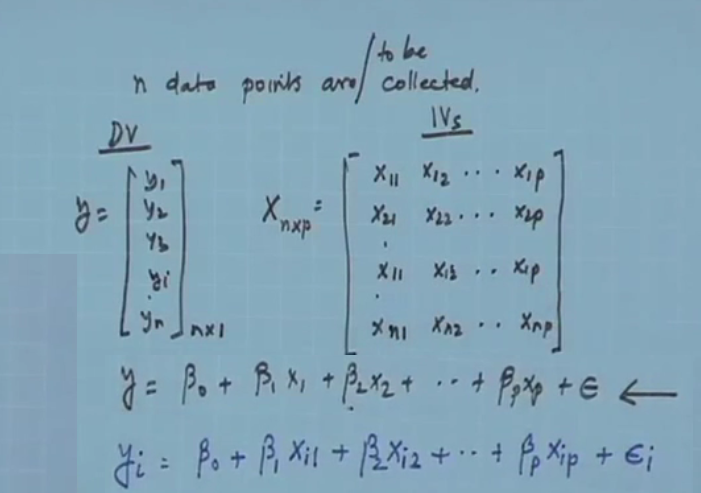 n data points are/to be collected.
DV
IVs
y = [y₁ y₂ y₃ yᵢ . yₙ] n×1
X n×p =
x₁₁ x₁₂ ... x₁p
x₂₁ x₂₂ ... x₂p
.
x₁₁ x₁₂ .. x₁p
.
xₙ₁ xₙ₂ .. xₙp
y = β₀ + β₁x₁ + β₂x₂ + ... + βₚxₚ + ϵ ←
yᵢ = β₀ + β₁xᵢ₁ + β₂xᵢ₂ + ... + βₚxᵢₚ + ϵᵢ